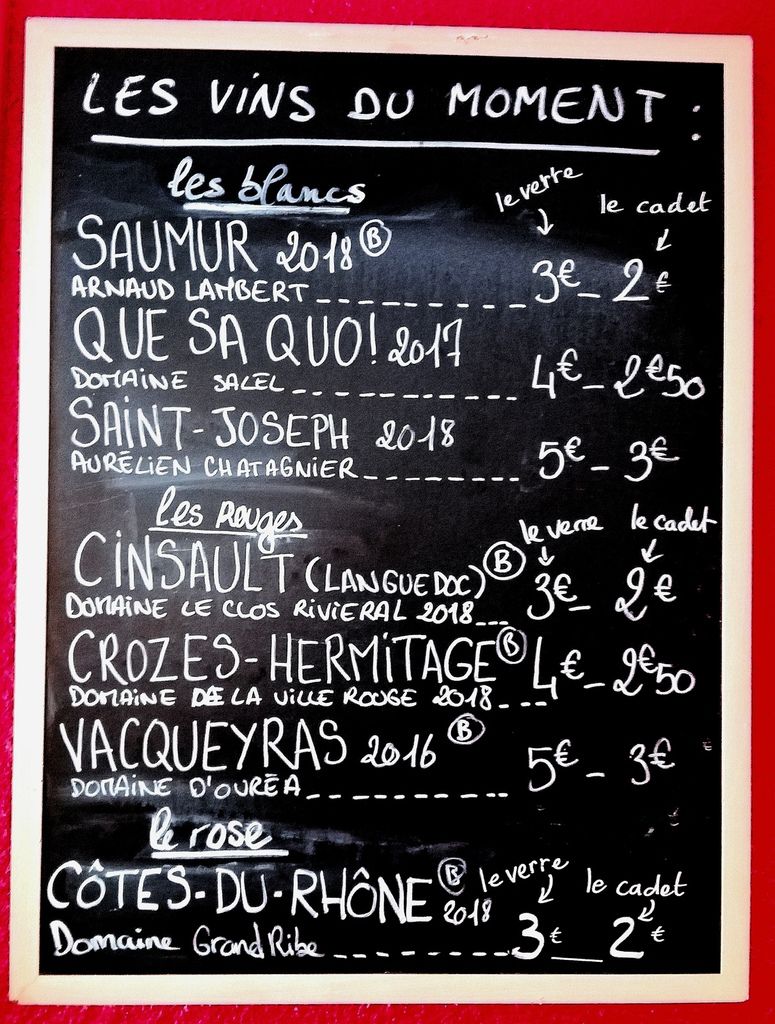 LES VINS DU MOMENT :
les blancs
le verre le cadet
SAUMUR 2018 Ⓑ
ARNAUD LAMBERT _ _ _ _ _ _ _ _ _ 3€ _ 2€
QUE SA QUO! 2017
DOMAINE SALEL _ _ _ _ _ _ _ _ _ _ 4€ _ 2€50
SAINT-JOSEPH 2018
AURÉLIEN CHATAGNIER _ _ _ _ _ _ _ _ 5€ _ 3€
les rouges
le verre le cadet
CINSAULT (LANGUEDOC) Ⓑ
DOMAINE LE CLOS RIVIERAL 2018 _ _ _ 3€ _ 2€
CROZES-HERMITAGE Ⓑ
DOMAINE DE LA VILLE ROUGE 2018 _ _ _ _ 4€ _ 2€50
VACQUEYRAS 2016 Ⓑ
DOMAINE D'OURÉA _ _ _ _ _ _ _ _ _ _ 5€ _ 3€
le rose
le verre le cadet
CÔTES-DU-RHÔNE Ⓑ 2018
Domaine Grand Ribe _ _ _ _ _ _ _ _ _ 3€ _ 2€